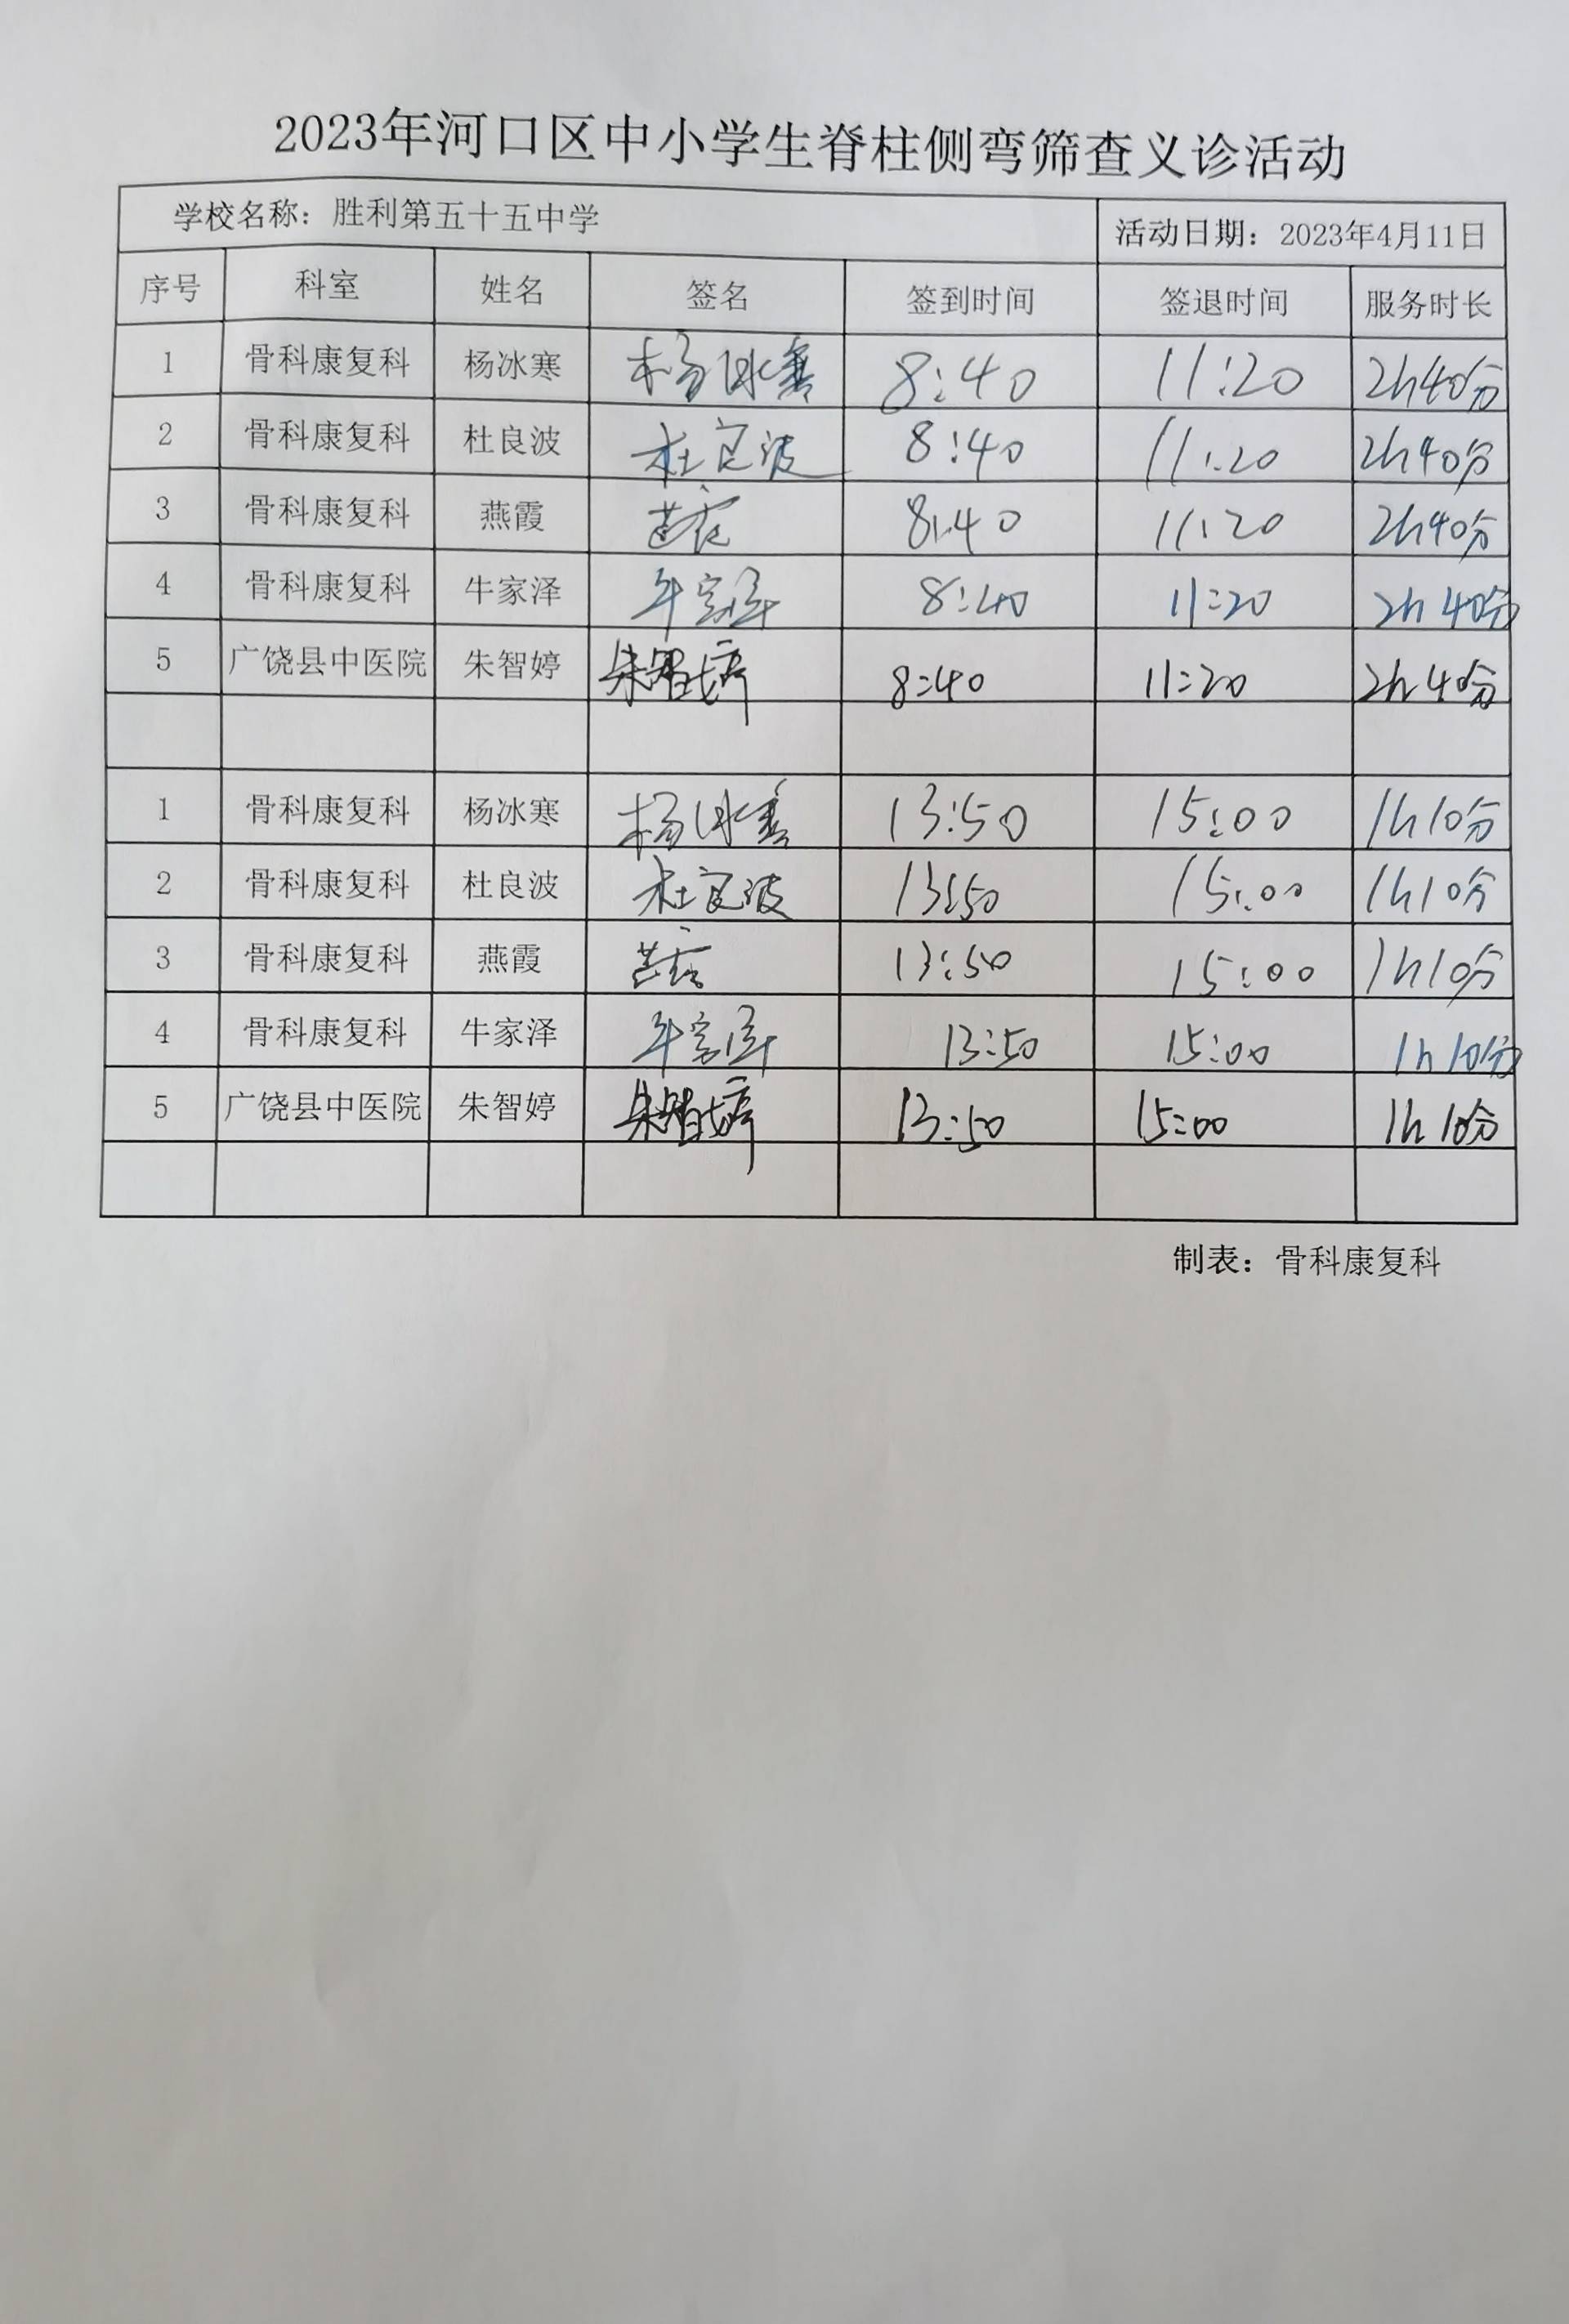 2023年河口区中小学生脊柱侧弯筛查义诊活动
学校名称：胜利第五十五中学 活动日期：2023年4月11日
序号 科室 姓名 签名 签到时间 签退时间 服务时长
1 骨科康复科 杨冰寒 杨冰寒 8:40 11:20 2h40分
2 骨科康复科 杜良波 杜良波 8:40 11:20 2h40分
3 骨科康复科 燕霞 燕霞 8:40 11:20 2h40分
4 骨科康复科 牛家泽 牛家泽 8:40 11:20 2h40分
5 广饶县中医院 朱智婷 朱智婷 8:40 11:20 2h40分
1 骨科康复科 杨冰寒 杨冰寒 13:50 15:00 1h10分
2 骨科康复科 杜良波 杜良波 13:50 15:00 1h10分
3 骨科康复科 燕霞 燕霞 13:50 15:00 1h10分
4 骨科康复科 牛家泽 牛家泽 13:50 15:00 1h10分
5 广饶县中医院 朱智婷 朱智婷 13:50 15:00 1h10分
制表：骨科康复科